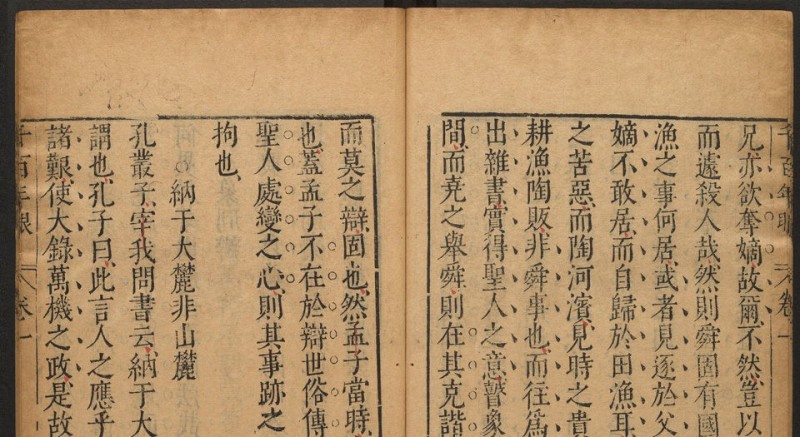 千百年眼 卷一
兄亦欲奪嫡故爾不然豈以
而遽殺人哉然則舜固有國
漁之事何居或者見逐於父
嫡不敢居而自歸於田漁耳
之苦惡而陶河濱見時之貴
耕漁陶販非舜事也而往爲
出雜書實得聖人之意瞽象
間而堯之舉舜則在其克諧
而莫之辯固也然孟子當時
也蓋孟子不在於辯世俗傳
聖人處變之心則其事跡之
拘也
納于大麓非山麓
孔叢子宰我問書云納于大
謂也孔子曰此言人之應乎
諸艱使大錄萬機之政是故
千百年眼 卷一